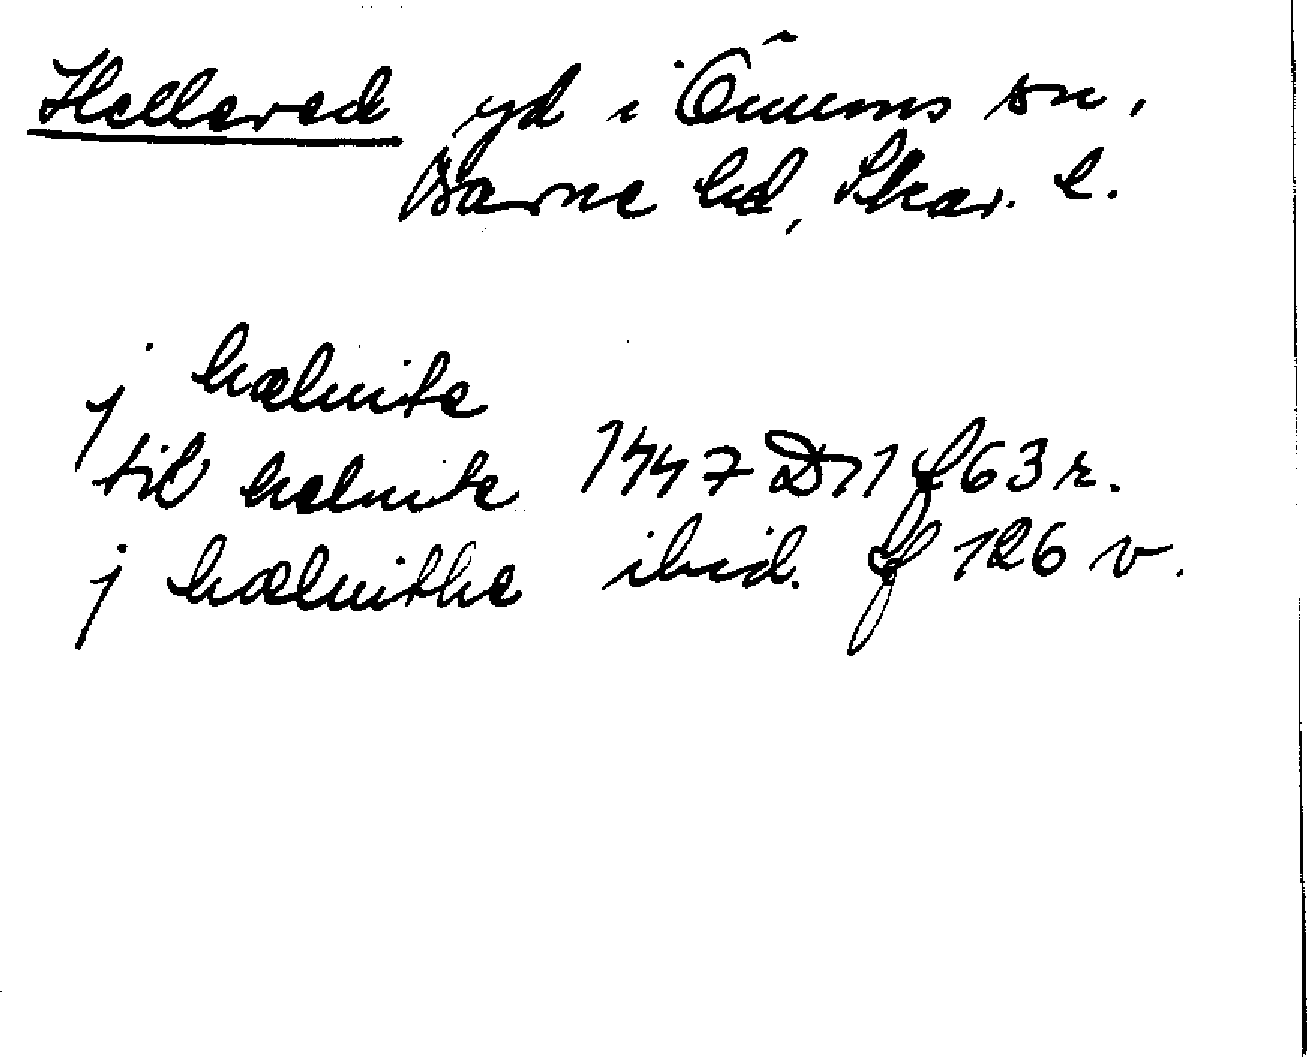 Hellered yd i Önums sn,
Barne hd, Skar. l.
j hælwite
til helwite 1447 D11 f 63 r.
j hælwithe ibid. f 126 v.